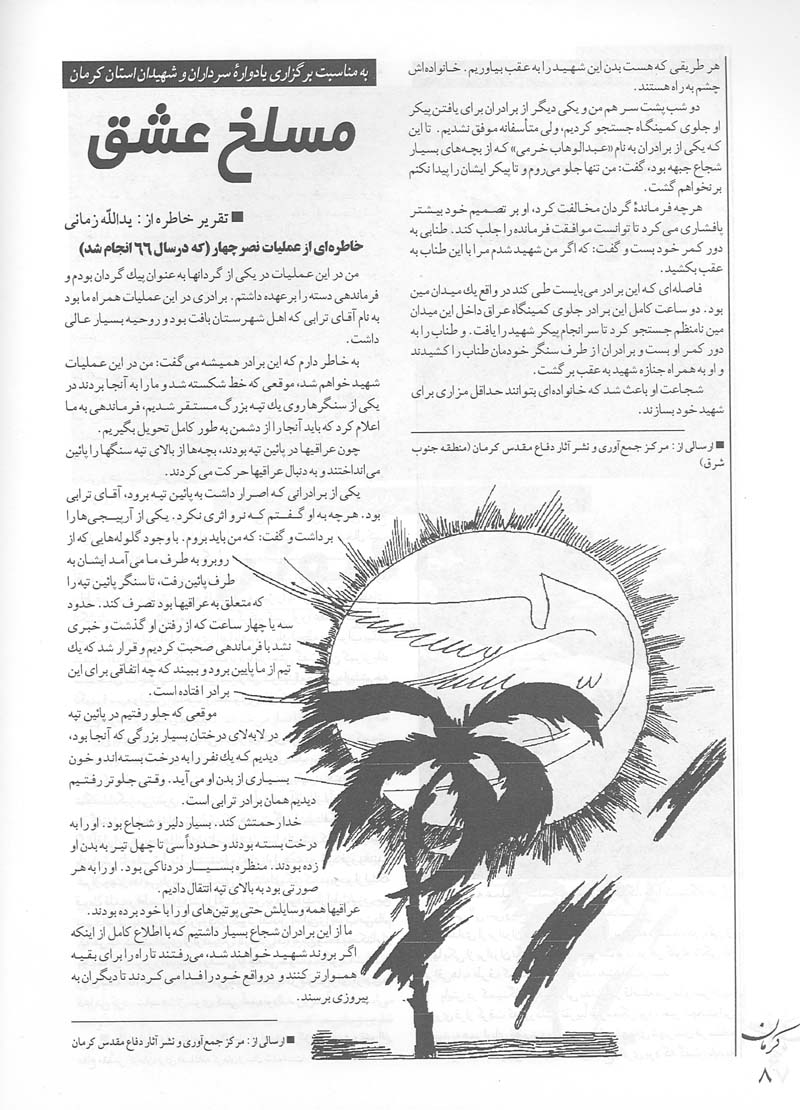 هر طریقی که هست بدن این شهید را به عقب بیاوریم. خانواده‌اش
چشم به راه هستند.
دو شب پشت سر هم من و یکی دیگر از برادران برای یافتن پیکر
او جلوی کمینگاه جستجو کردیم، ولی متأسفانه موفق نشدیم. تا این
که یکی از برادران به نام «عبدالوهاب خرمی» که از بچه‌های بسیار
شجاع جبهه بود، گفت: من تنها جلو می‌روم و تا پیکر ایشان را پیدا نکنم
برنخواهم گشت.
هرچه فرماندهٔ گردان مخالفت کرد، او بر تصمیم خود بیشتر
پافشاری می‌کرد تا توانست موافقت فرمانده را جلب کند. طنابی به
دور کمر خود بست و گفت: که اگر من شهید شدم مرا با این طناب به
عقب بکشید.
فاصله‌ای که این برادر می‌بایست طی کند در واقع یك میدان مین
بود. دو ساعت کامل این برادر جلوی کمینگاه عراق داخل این میدان
مین نامنظم جستجو کرد تا سرانجام پیکر شهید را یافت. و طناب را به
دور کمر او بست و برادران از طرف سنگر خودمان طناب را کشیدند
و او به همراه جنازه شهید به عقب برگشت.
شجاعت او باعث شد که خانواده‌ای بتوانند حداقل مزاری برای
شهید خود بسازند.
■ ارسالی از: مرکز جمع‌آوری و نشر آثار دفاع مقدس کرمان (منطقه جنوب
شرق)
به مناسبت برگزاری یادوارهٔ سرداران و شهیدان استان کرمان
مسلخ عشق
■ تقریر خاطره از: یدالله زمانی
خاطره‌ای از عملیات نصر چهار (که در سال ۶۶ انجام شد)
من در این عملیات در یکی از گردانها به عنوان پیك گردان بودم و
فرماندهی دسته را بر عهده داشتم. برادری در این عملیات همراه ما بود
به نام آقای ترابی که اهل شهرستان بافت بود و روحیه بسیار عالی
داشت.
به خاطر دارم که این برادر همیشه می‌گفت: من در این عملیات
شهید خواهم شد، موقعی که خط شکسته شد و ما را به آنجا بردند در
یکی از سنگرها روی یك تپه بزرگ مستقر شدیم، فرماندهی به ما
اعلام کرد که باید آنجا را از دشمن به طور کامل تحویل بگیریم.
چون عراقیها در پائین تپه بودند، بچه‌ها از بالای تپه سنگها را پائین
می‌انداختند و به دنبال عراقیها حرکت می‌کردند.
یکی از برادرانی که اصرار داشت به پائین تپه برود، آقای ترابی
بود. هرچه به او گفتم که نرو اثری نکرد. یکی از آرپی‌جی‌ها را
برداشت و گفت: که من باید بروم. با وجود گلوله‌هایی که از
روبرو به طرف ما می‌آمد ایشان به
طرف پائین رفت، تا سنگر پائین تپه را
که متعلق به عراقیها بود تصرف کند. حدود
سه یا چهار ساعت که از رفتن او گذشت و خبری
نشد با فرماندهی صحبت کردیم و قرار شد که یك
تیم از ما پایین برود و ببیند که چه اتفاقی برای این
برادر افتاده است.
موقعی که جلو رفتیم در پائین تپه
در لابه‌لای درختان بسیار بزرگی که آنجا بود،
دیدیم که یك نفر را به درخت بسته‌اند و خون
بسیاری از بدن او می‌آید. وقتی جلوتر رفتیم
دیدیم همان برادر ترابی است.
خدا رحمتش کند. بسیار دلیر و شجاع بود. او را به
درخت بسته بودند و حدوداً سی تا چهل تیر به بدن او
زده بودند. منظره بسیار دردناکی بود. او را به هر
صورتی بود به بالای تپه انتقال دادیم.
عراقیها همه وسایلش حتی پوتین‌های او را با خود برده بودند.
ما از این برادران شجاع بسیار داشتیم که با اطلاع کامل از اینکه
اگر بروند شهید خواهند شد، می‌رفتند تا راه را برای بقیه
هموارتر کنند و درواقع خود را فدا می‌کردند تا دیگران به
پیروزی برسند.
■ ارسالی از: مرکز جمع‌آوری و نشر آثار دفاع مقدس کرمان
کرمان
۸